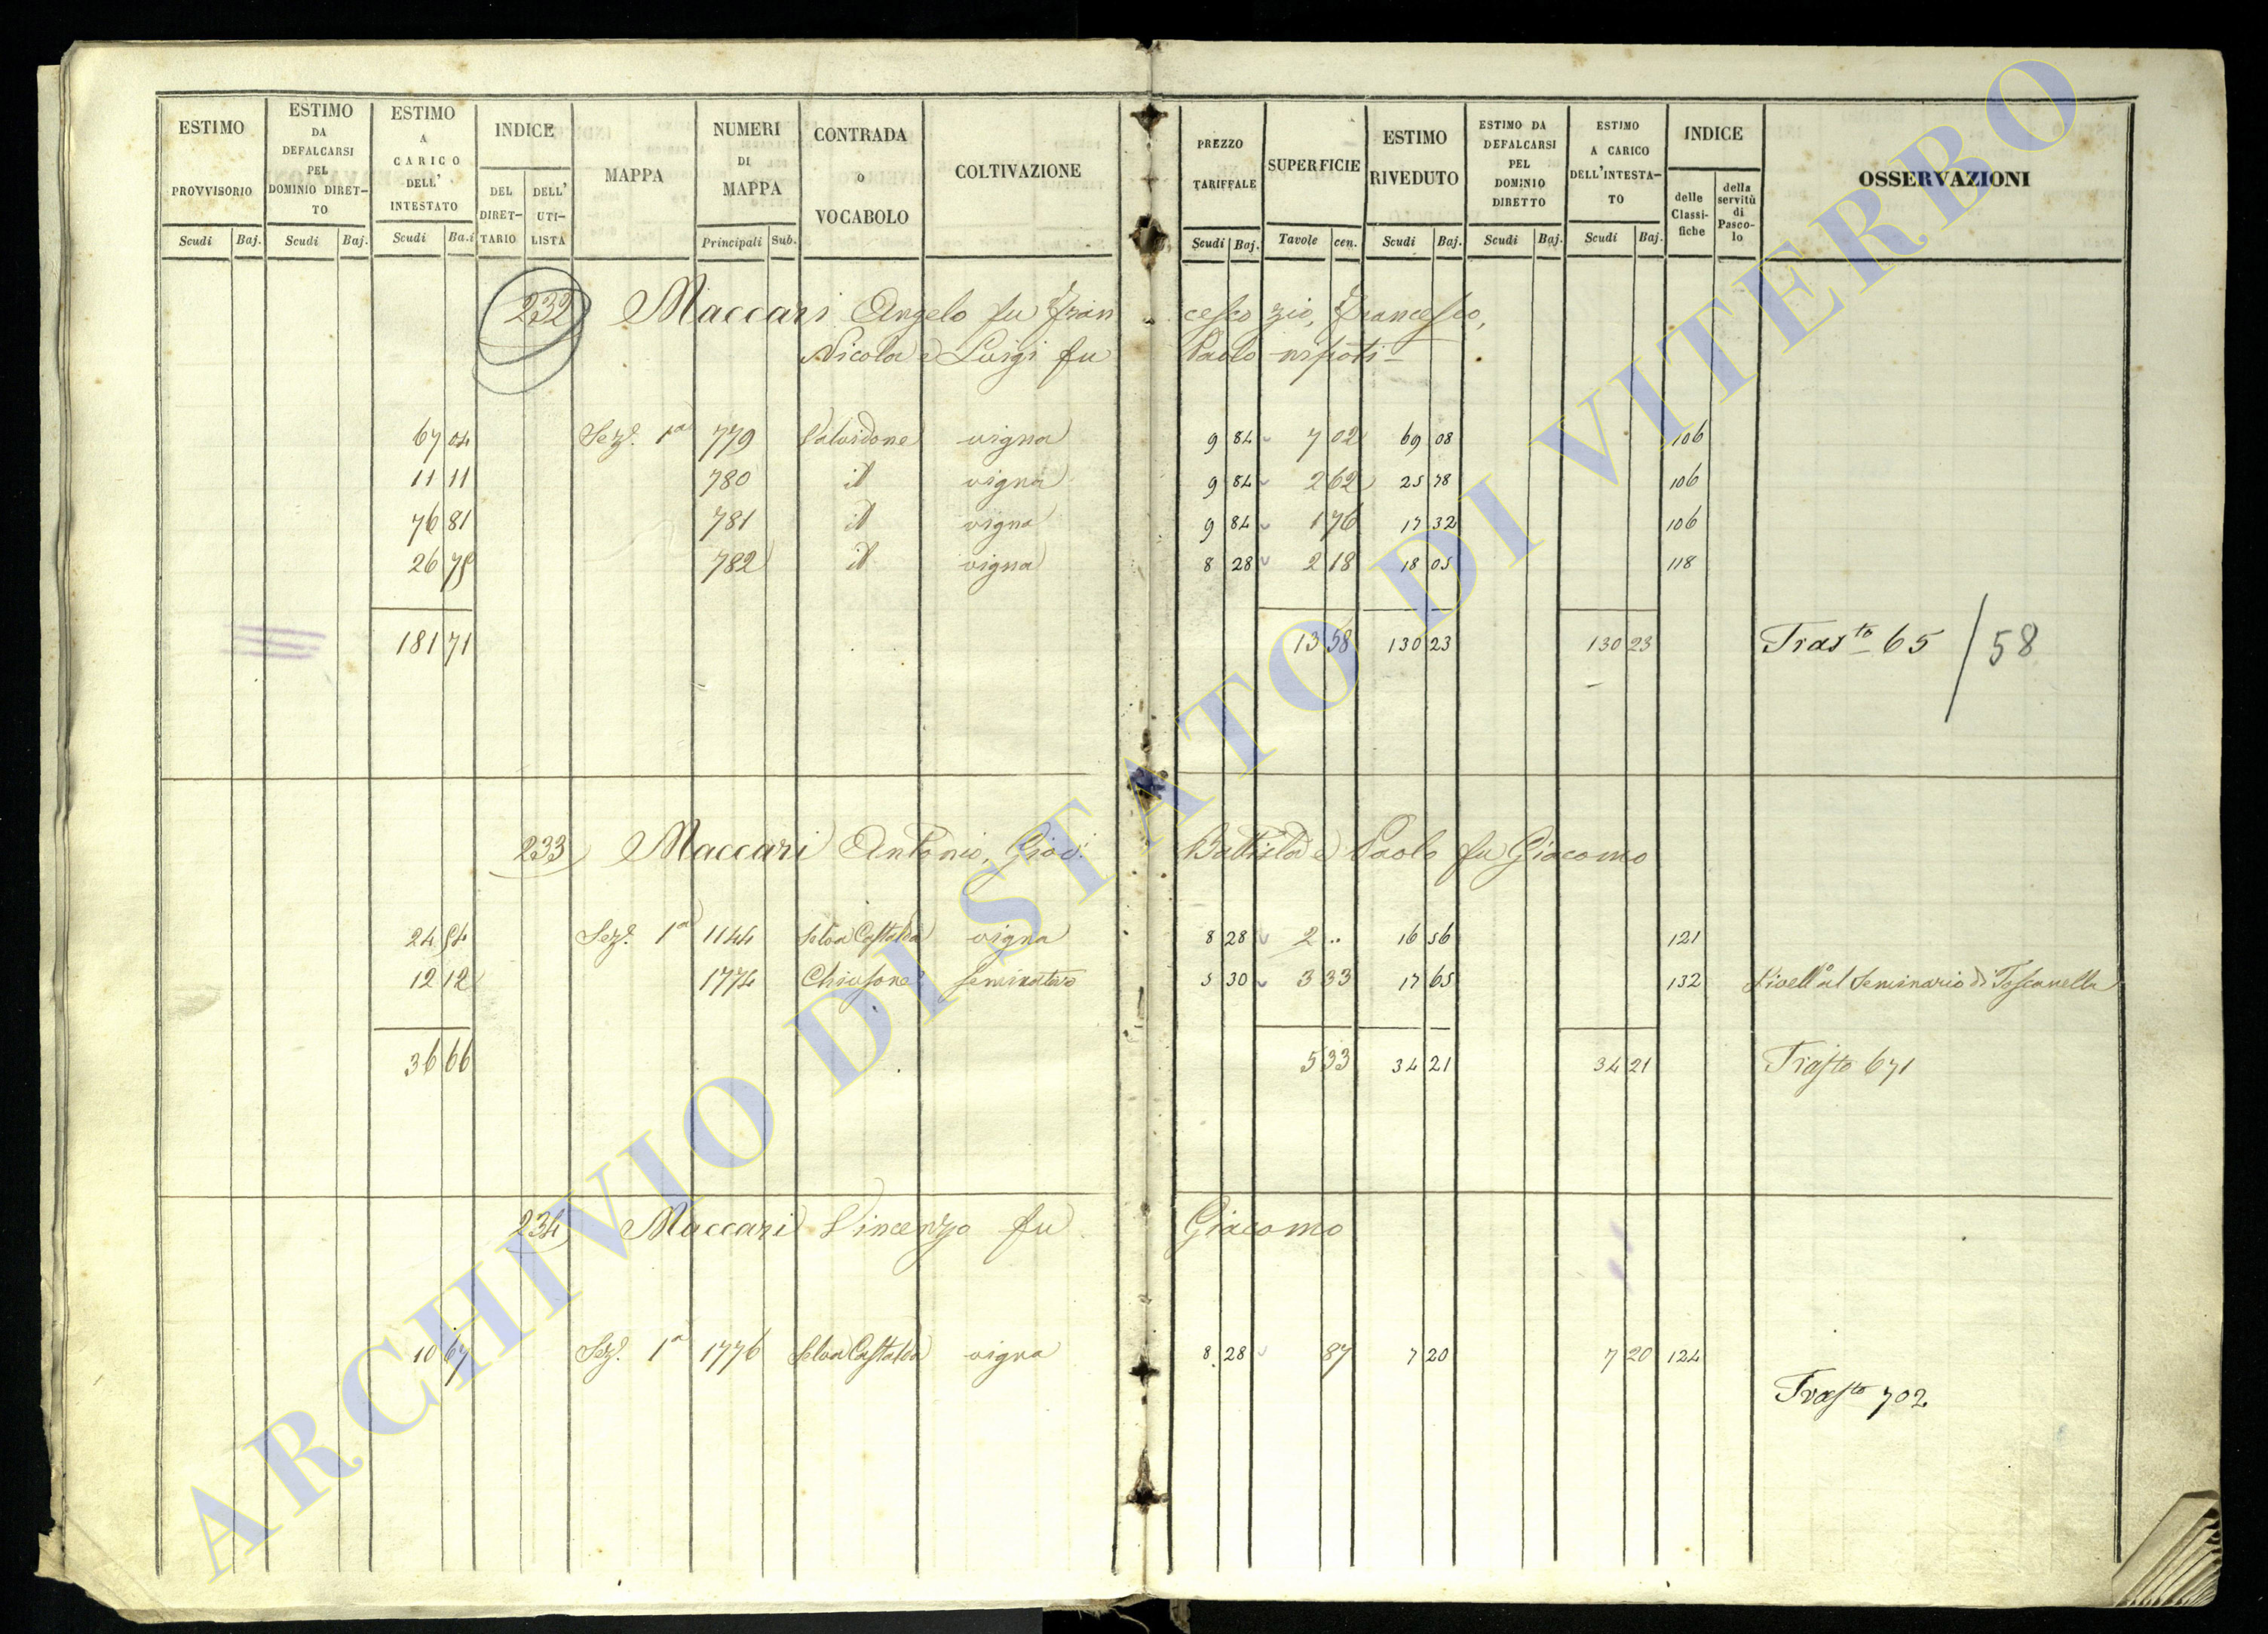 ESTIMO PROVVISORIO Scudi Baj.
ESTIMO DA DEFALCARSI PEL DOMINIO DIRET-TO Scudi Baj.
ESTIMO A CARICO DELL' INTESTATO Scudi Ba.i
INDICE DEL DIRET-TARIO DELL' UTI-LISTA
MAPPA
NUMERI DI MAPPA Principali Sub.
CONTRADA o VOCABOLO
COLTIVAZIONE
PREZZO TARIFFALE Scudi Baj.
SUPERFICIE Tavole cen.
ESTIMO RIVEDUTO Scudi Baj.
ESTIMO DA DEFALCARSI PEL DOMINIO DIRETTO Scudi Baj.
ESTIMO A CARICO DELL'INTESTA-TO Scudi Baj.
INDICE delle Classi-fiche della servitù di Pasco-lo
OSSERVAZIONI
232 Maccari Angelo fu Fran cesco zio, Francesco,
Nicola e Luigi fu Paolo nipoti
67 04 Sez.e 1a 779 Valvidone vigna 9 84 7 02 69 08 106
11 11 780 id vigna 9 84 2 62 25 78 106
76 81 781 id vigna 9 84 1 76 17 32 106
26 75 782 id vigna 8 28 2 18 18 05 118
181 71 13 58 130 23 130 23 Trasto 65 / 58
233 Maccari Antonio, Giov: Battista e Paolo fu Giacomo
24 54 Sez.e 1a 1144 Selva Castalda vigna 8 28 2 .. 16 56 121
12 12 1774 Chiusone seminativo 5 30 3 33 17 65 132 Livello al Seminario di Toscanella
36 66 5 33 34 21 34 21 Trasto 671
234 Maccari Vincenzo fu Giacomo
10 67 Sez.e 1a 1776 Selva Castalda vigna 8 28 87 7 20 7 20 124
Trasto 702
ARCHIVIO DI STATO DI VITERBO